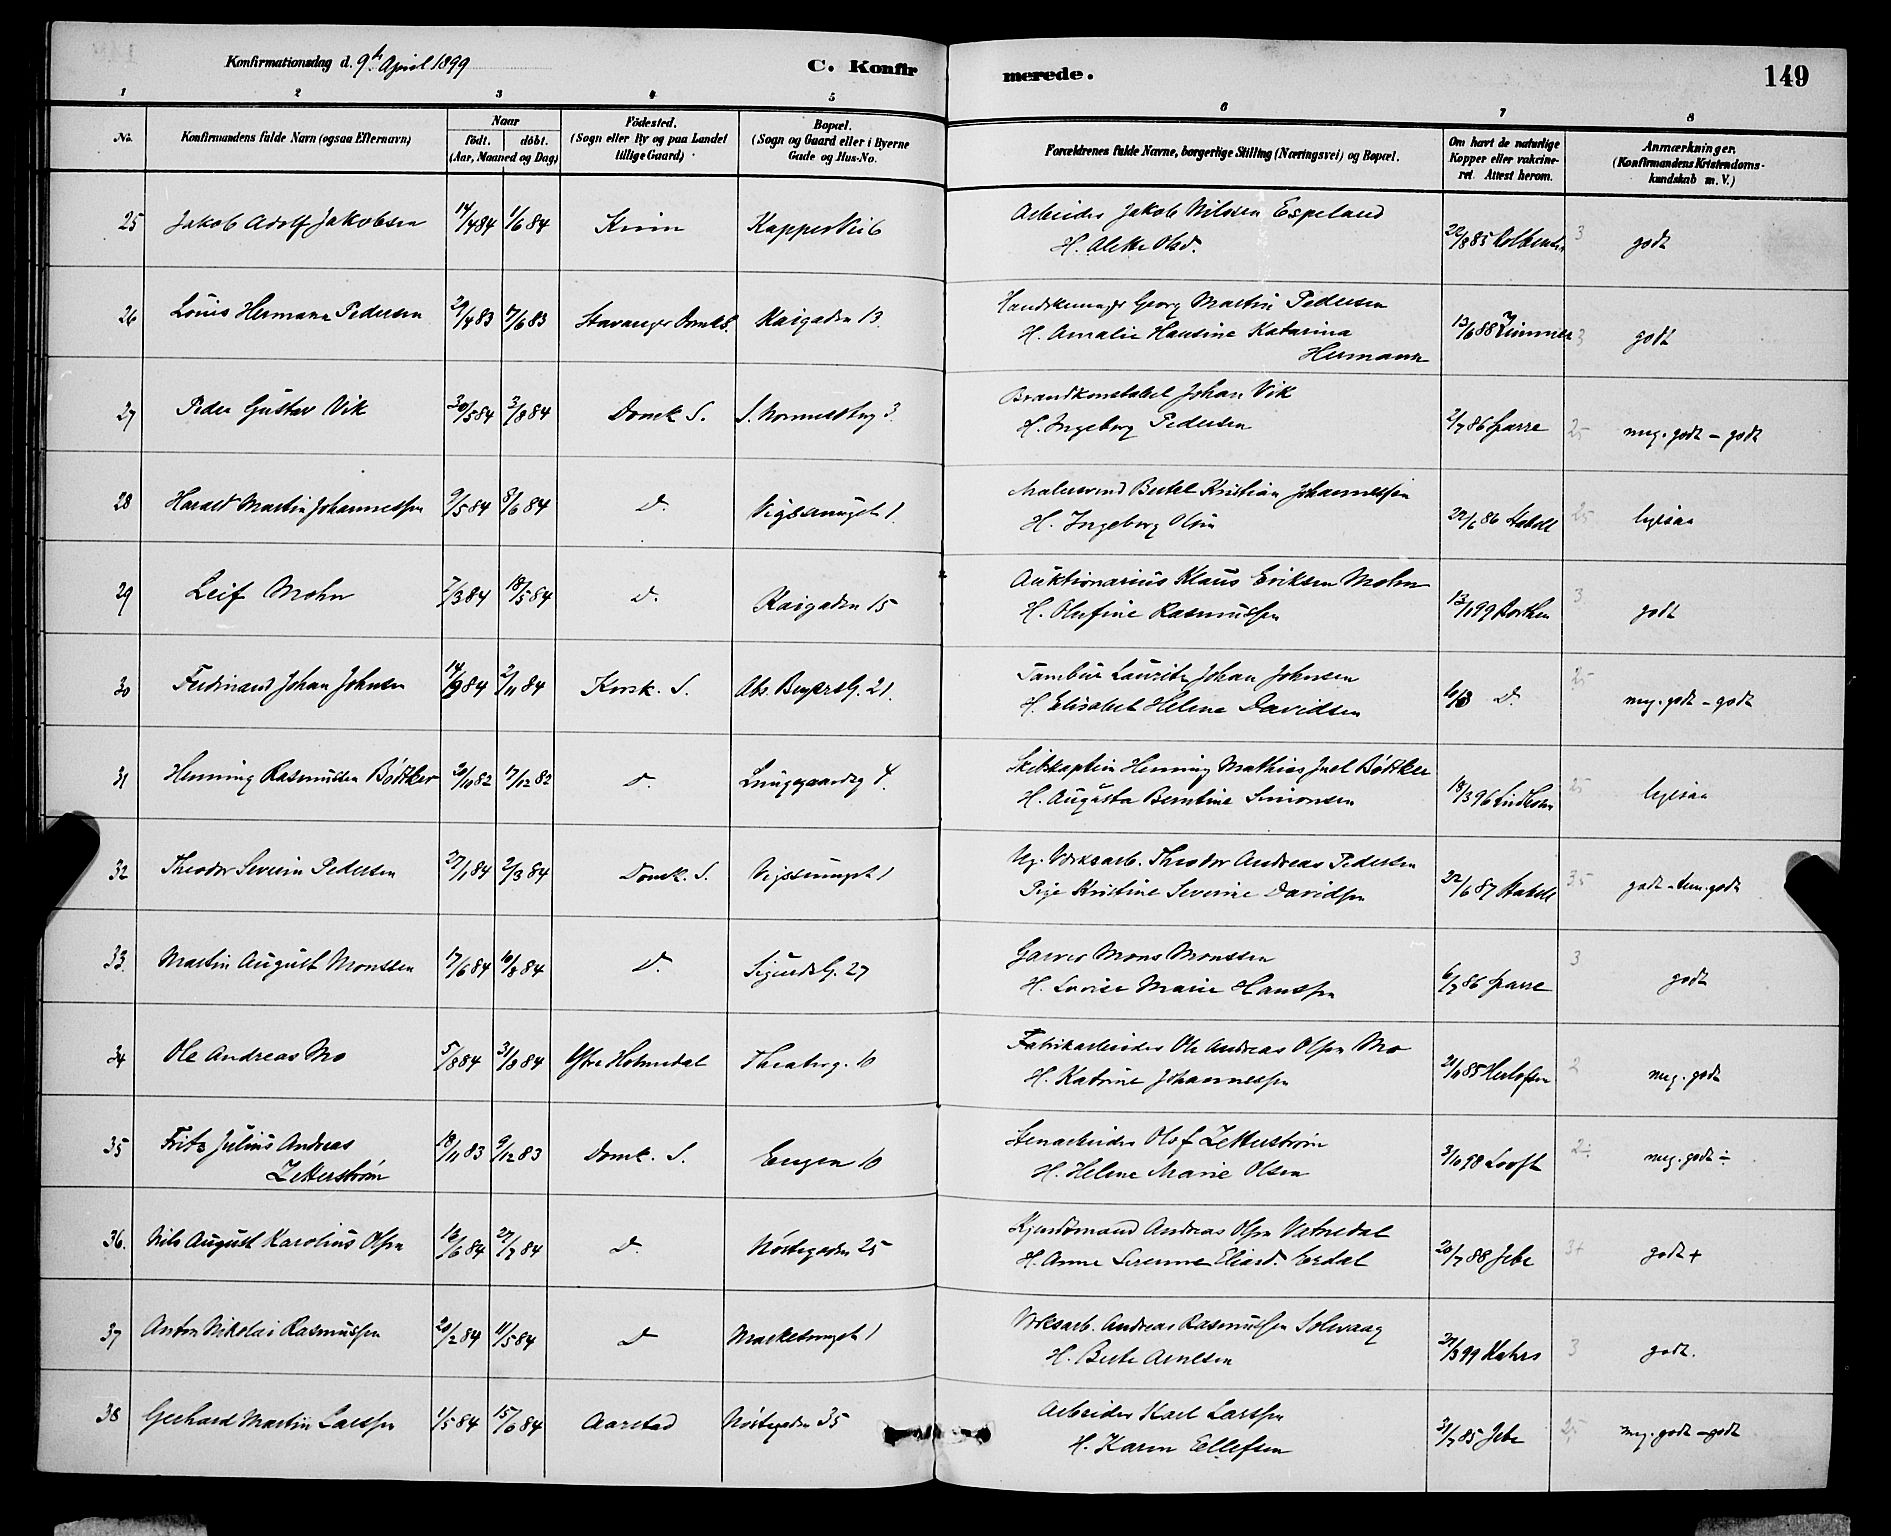 Konfirmationsdag d. 9de April 1899 C. Konfir merede. 149
1 2 3 4 5 6 7 8
No. Konfirmandens fulde Navn (ogsaa Efternavn) Naar født. døbt. (Aar, Maaned og Dag) Fødested. (Sogn eller By og paa Landet tillige Gaard) Bopæl. (Sogn og Gaard eller i Byerne Gade og Hus-No. Forældrenes fulde Navne, borgerlige Stilling (Næringsvei) og Bopæl. Om havt de naturlige Kopper eller vakcineret. Attest herom. Anmærkninger. (Konfirmandens Kristendomskundskab m. V.)
25 Jakob Adolf Jakobsen 14/4 84 1/6 84 Kinn Kappervei 6 Arbeider Jakob Nilssen Espeland 22/8 85 3 godt
H. Alette Olsd.
26 Louis Hermann Pedersen 29/4 83 17/6 83 Stavanger Domk S. Kaigaden 13 Handskemager Georg Martin Pedersen 13/6 88 Zimmer 3 godt
H. Amalie Hansine Katarina
Hermann
27 Peder Gustav Vik 30/5 84 3/8 84 Domk S. 3 Brandkonstabel Johan Vik 2/7 86 Sparre 25 meg. godt - godt
H. Ingeborg Pedersen
28 Harald Martin Johannessen 9/5 84 8/6 84 D. 1 Malersvend Bertel Kristian Johannessen 22/6 86 Stabell 25 ligesaa
H. Ingeborg Olsen
29 Leif Mohn 7/3 84 18/5 84 D. Kaigaden 15 Auktionarius Klaus Eriksen Mohn 13/1 99 3 godt
H. Olufine Rasmussen
30 Ferdinand Johan Johnsen 14/9 84 2/11 84 Korsk. S. Abs. Beyersg. 21. Tambur Lauritz Johan Johnsen D. 25 meg. godt - godt
H. Elisabet Helene Davidsen
31 Henning Rasmussen Bødtker 20/10 82 17/12 82 D. Lungegaardsg 4. Skibskaptein Henning Mathias Juel Bødtker 18/3 96 Lindholm 25 ligesaa
H. Augusta Berntine Simonsen
32 Theodor Severin Pedersen 27/1 84 2/3 84 Domk. S. 1 Ug. Verksarb. Theodor Andreas Pedersen 22/6 87 Stabell 35 godt - tem. godt
Pige Kristine Severine Davidsen
33. Martin August Monssen 17/6 84 10/8 84 D. Sigurdsg. 27 Garver Mons Monssen 6/7 86 Sparre 3 godt
H. Lovise Marie Hanssen
34 Ole Andreas Mo 5/8 84 31/8 84 Ytre Holmedal Theaterg. 10 Fabrikarbeider Ole Andreas Olsen Mo 21/10 85 Herlofsen 2 meg. godt
H. Katrine Johannessen
35 Fritz Julius Andreas 18/11 83 9/12 83 Domk. S. Engen 10 Stenarbeider Olof Zetterstrøm 3/10 98 Looft 2÷ meg. godt ÷
Zetterstrøm H. Helene Marie Olsen
36. Nils August Karolius Olsen 16/6 84 27/7 84 D. Nøstegaden 25 Kjøudtmand Andreas Olsen Vatnedal 20/7 88 Jebe 3+ godt +
H. Anne Serenne Eliasd. Erdal
37 Anton Nikolai Rasmussen 20/2 84 11/5 84 D 1 Verksarb. Andreas Rasmussen Solvaag 27/3 99 Kahrs 3 godt.
H. Berte Arnesen
38 Gerhard Martin Larssen 1/5 84 15/6 84 Aarstad Nøstegaden 35 Arbeider Karl Larssen 31/7 85 Jebe 25 meg. godt - godt
H. Karen Ellefsen